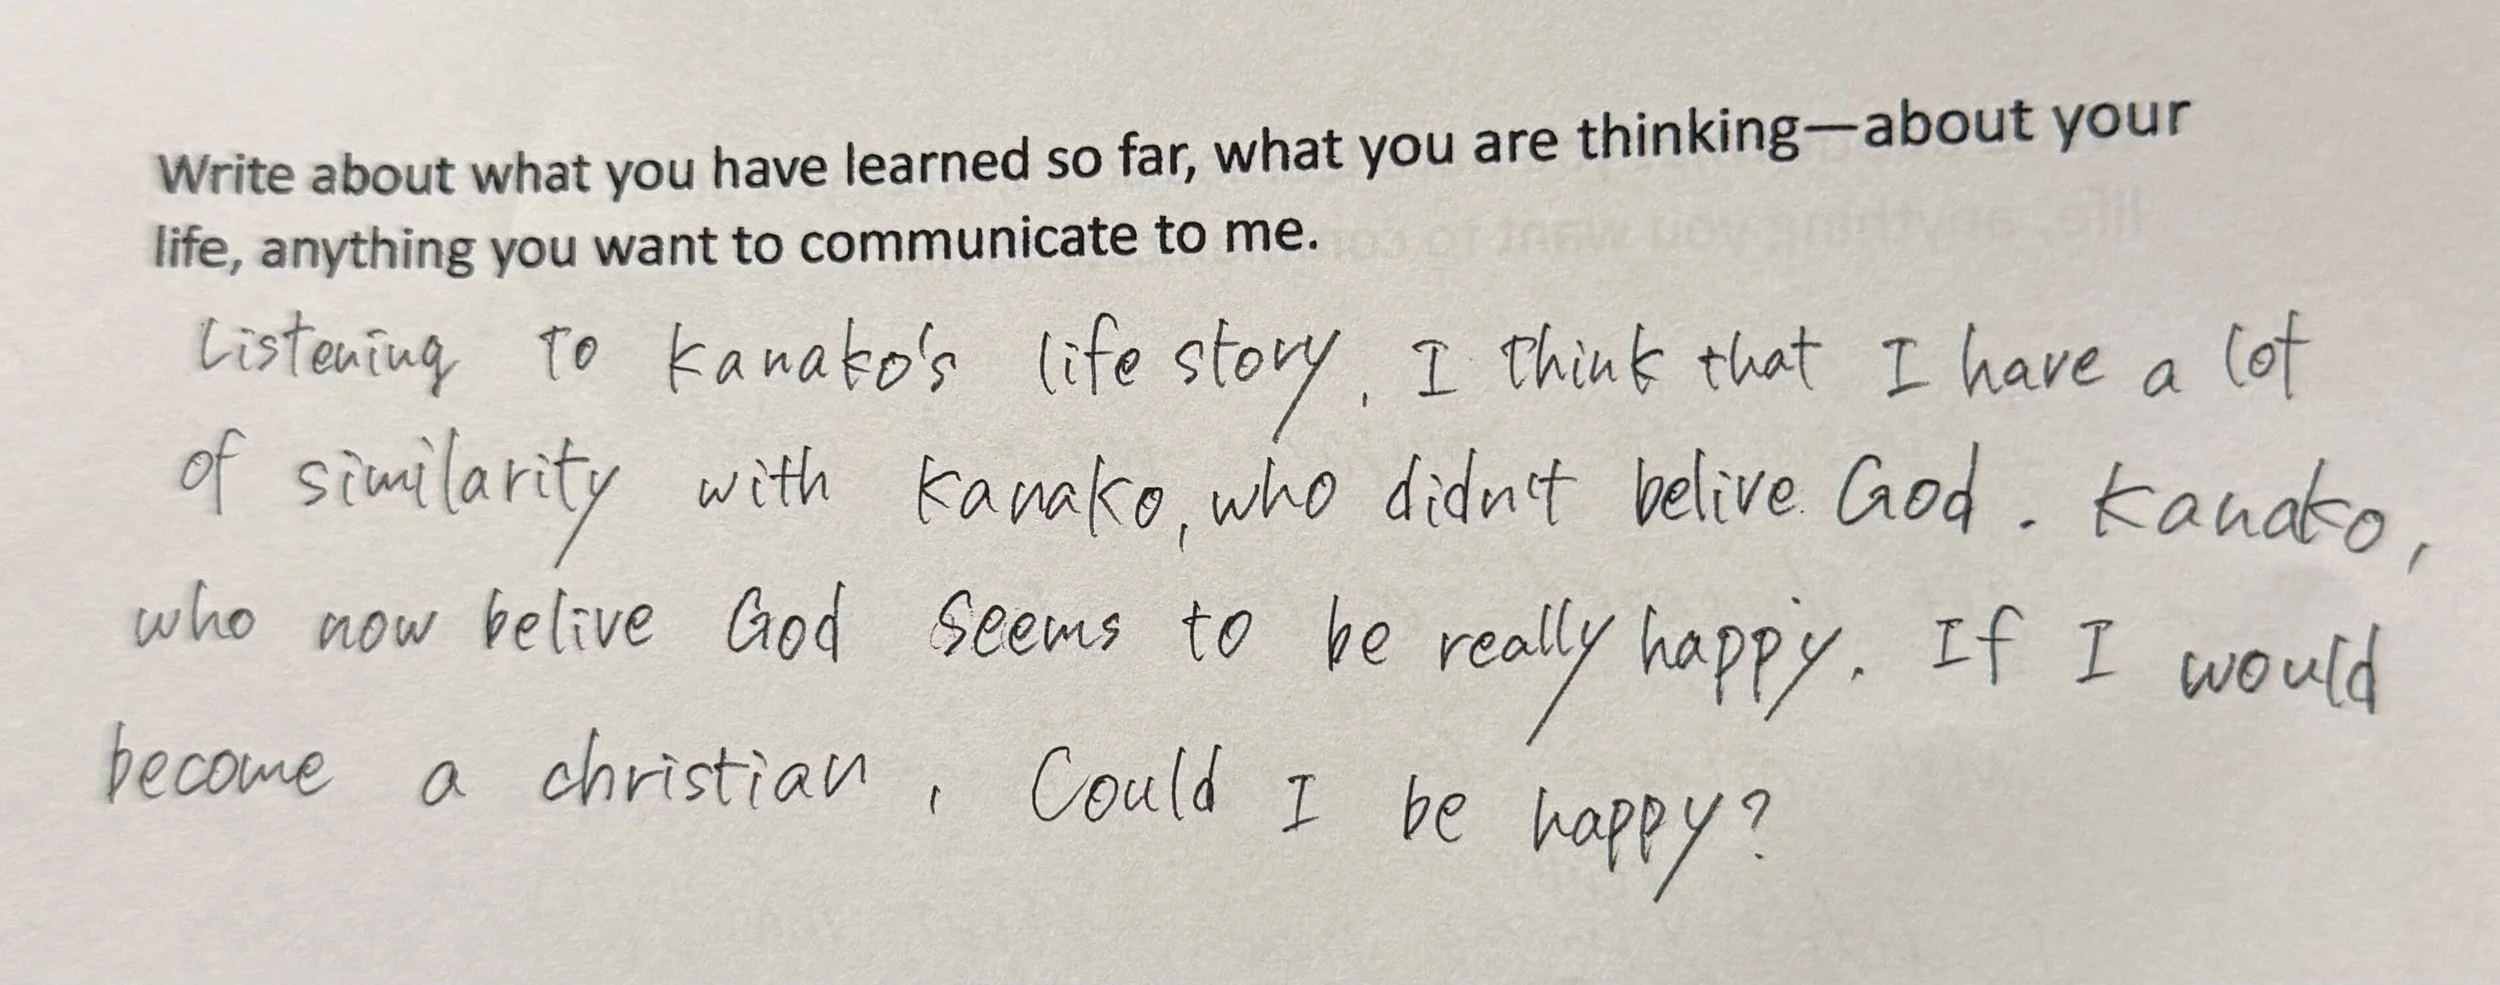 Write about what you have learned so far, what you are thinking—about your
life, anything you want to communicate to me.
Listening to Kanako's life story, I think that I have a lot
of similarity with Kanako, who didn't belive God. Kanako,
who now belive God seems to be really happy. If I would
become a christian, Could I be happy?